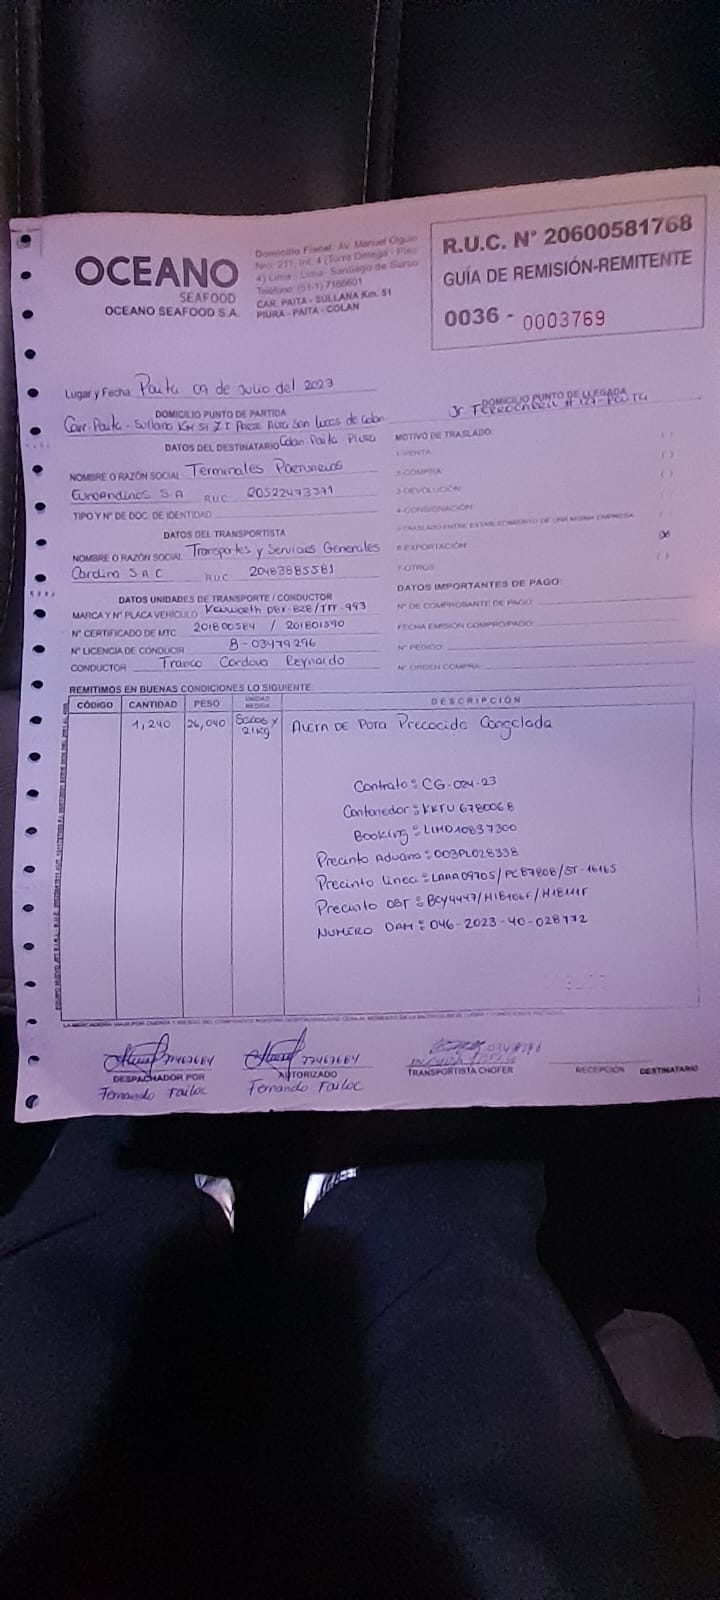 OCEANO
SEAFOOD
OCEANO SEAFOOD S.A.
Domicilio Fiscal: Av. Manuel Olguin
Nro. 211, Int. 4 (Torre Omega - Piso
4) Lima - Lima- Santiago de Surco
Teléfono: (51-1) 7166601
CAR. PAITA - SULLANA Km. 51
PIURA - PAITA - COLAN
R.U.C. N° 20600581768
GUÍA DE REMISIÓN-REMITENTE
0036 - 0003769
Lugar y Fecha: Paita 09 de Julio del 2023
DOMICILIO PUNTO DE PARTIDA
Carr. Paita - Sullana KM 51 Z I San Lucas de Colan
Colan Paita Piura
DOMICILIO PUNTO DE LLEGADA
DATOS DEL DESTINATARIO
NOMBRE O RAZÓN SOCIAL Terminales Portuarios
Euroandinos S.A RUC 20522473571
TIPO Y N° DE DOC. DE IDENTIDAD
DATOS DEL TRANSPORTISTA
NOMBRE O RAZÓN SOCIAL Transportes y Servicios Generales
Cordino S A C RUC 20483885581
DATOS UNIDADES DE TRANSPORTE / CONDUCTOR
MARCA Y N° PLACA VEHÍCULO Kenworth D8X-828/TIT-993
N° CERTIFICADO DE MTC 201800584 / 201801590
N° LICENCIA DE CONDUCIR B-03479296
CONDUCTOR Franco Cordova Reynaldo
MOTIVO DE TRASLADO:
1-VENTA ( )
2-COMPRA ( )
3-DEVOLUCIÓN ( )
4-CONSIGNACIÓN
5-TRASLADO ENTRE ESTABLECIMIENTO DE UNA MISMA EMPRESA
6-EXPORTACIÓN (X)
7-OTROS ( )
DATOS IMPORTANTES DE PAGO:
N° DE COMPROBANTE DE PAGO:
FECHA EMISIÓN COMP/PAGO:
N° PEDIDO:
N° ORDEN COMPRA:
REMITIMOS EN BUENAS CONDICIONES LO SIGUIENTE:
CÓDIGO CANTIDAD PESO UNIDAD MEDIDA DESCRIPCIÓN
1,240 26,040 Sacos x ALETA DE POTA Precocida Congelada
21kg
Contrato: CG-024-23
Contenedor: KKTU 6780068
Booking: LIMD10837300
Precinto Aduana: 003PL028338
Precinto Linea: LAAA09705/PC87808/ST-16165
Precinto OBT: BCY4447/
NUMERO DAM: 046-2023-40-028172
77467664 77467664
DESPACHADOR POR AUTORIZADO TRANSPORTISTA CHOFER RECEPCIÓN DESTINATARIO
Fernando Failoc Fernando Failoc